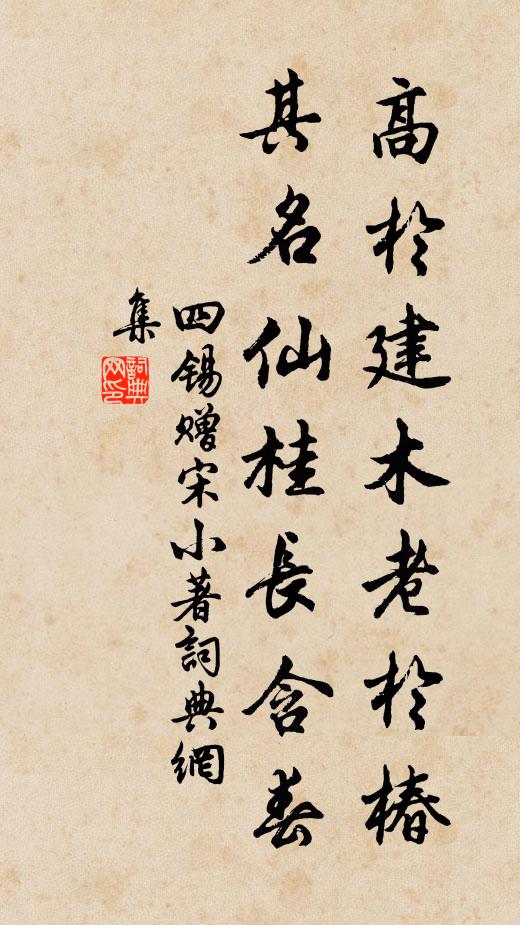 高於建木老於椿
其名仙桂長含春
四锡赠宋小著詞典網
集
詞典網印